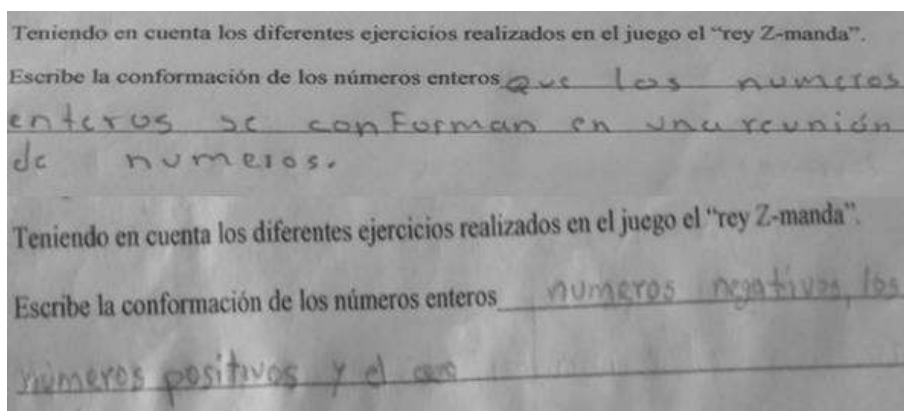 Teniendo en cuenta los diferentes ejercicios realizados en el juego el “rey Z-manda”.
Escribe la conformación de los números enteros que los numeros
enteros se conForman en una reunión
de numeros.
Teniendo en cuenta los diferentes ejercicios realizados en el juego el “rey Z-manda”.
Escribe la conformación de los números enteros numeros negativos, los
números positivos y el cero